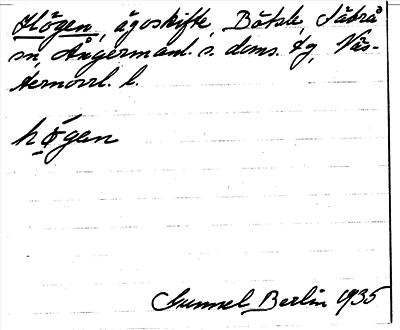 Högen, ägoskifte, Bätsle, Säbrå
sn, Ångermanl. s. doms. tg, Väs-
ternorrl. l.
högen
Gunnel Berlin 1935